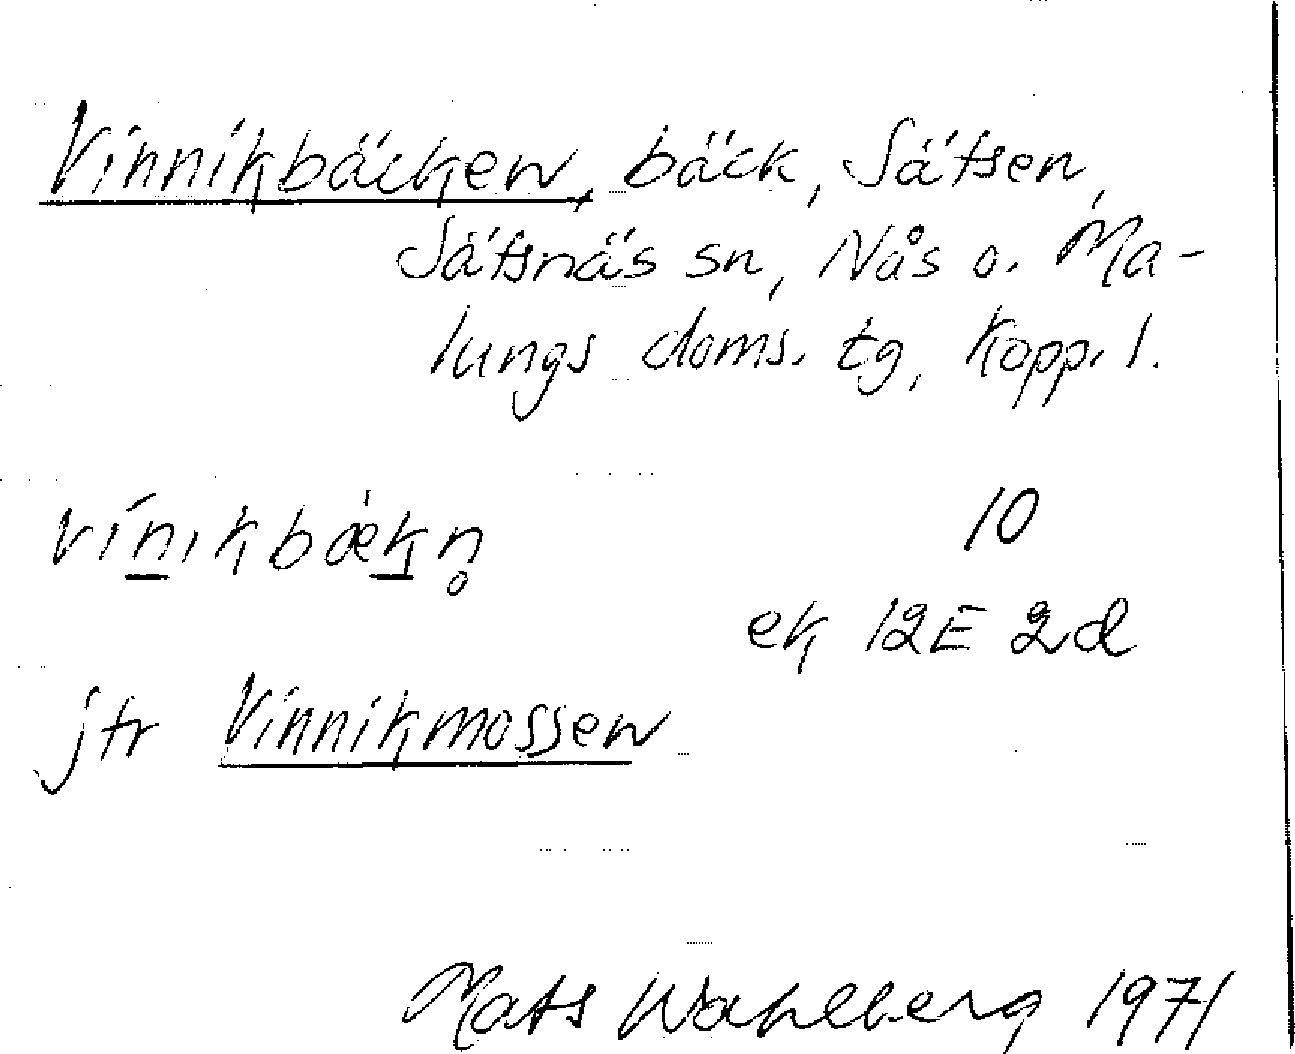 Vinnikbäcken, bäck, Säfsen,
Säfsnäs sn, Nås o. Ma-
lungs doms. tg, Kopp. l.
vìnikbǽkn̥ 10
ek 12E 2d
jfr Vinnikmossen
Mats Wahlberg 1971